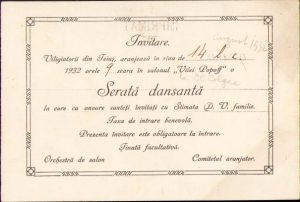 Invitare.
Viligiatorii din Teiuș, aranjează în ziua de 14
1932 orele 9 seara în salonul „Vilei Popoff" o
Serată dansantă
la care cu onoare sunteți invitați cu Stimata D. V. familie.
Taxa de intrare benevolă.
Prezenta invitare este obligatoare la intrare.
Ținută facultativă.
Orchestră de salon
Comitetul aranjator.